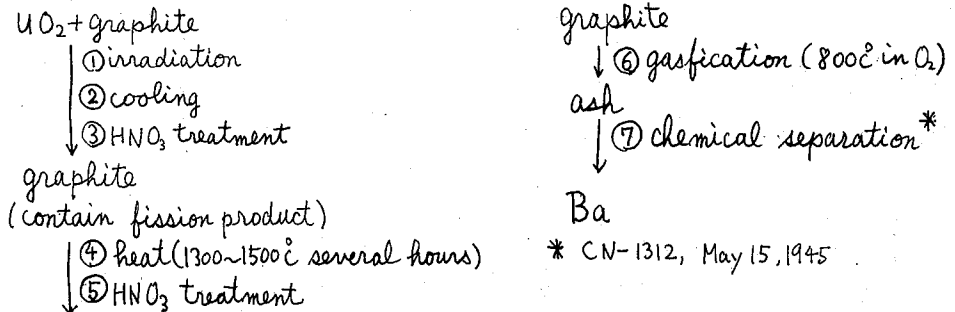 UO₂+graphite
①irradiation
②cooling
③HNO₃ treatment
graphite
(contain fission product)
④ heat(1300~1500°C several hours)
⑤HNO₃ treatment
graphite
⑥ gasfication (800°C in O₂)
ash
⑦ chemical separation*
Ba
* CN-1312, May 15, 1945